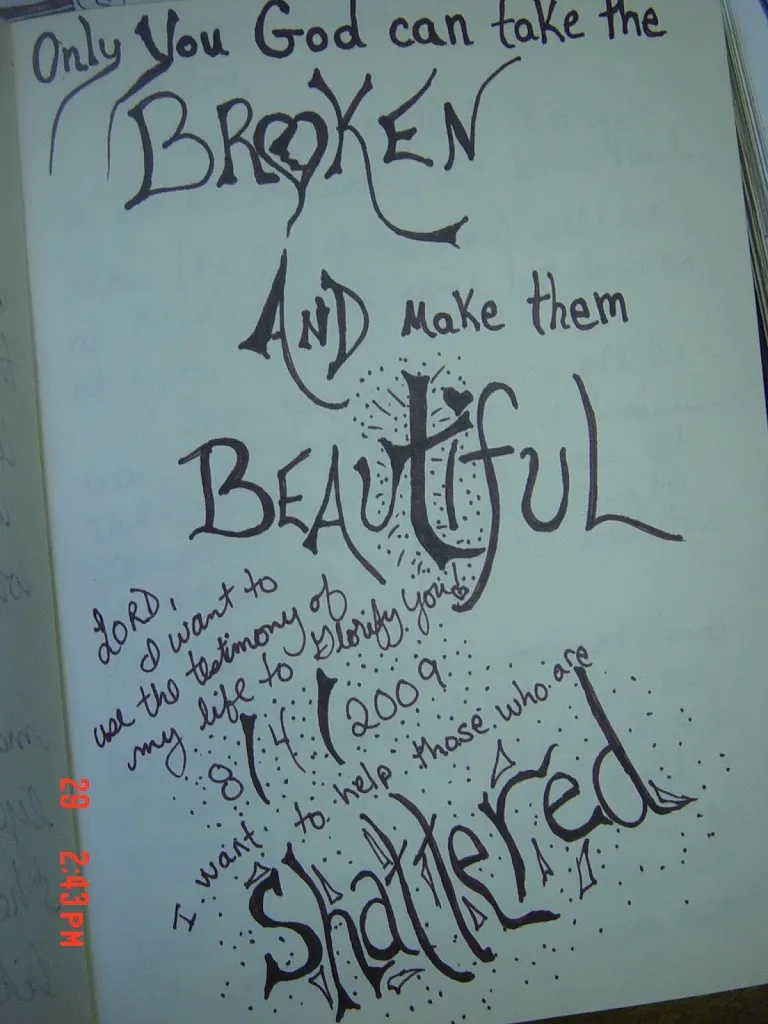 Only You God can take the
BROKEN
AND make them
BEAUtifUL
LORD,
I want to
use the testimony of
my life to Glorify You!
8/4/2009
I want to help those who are
shattered
29 2:43PM